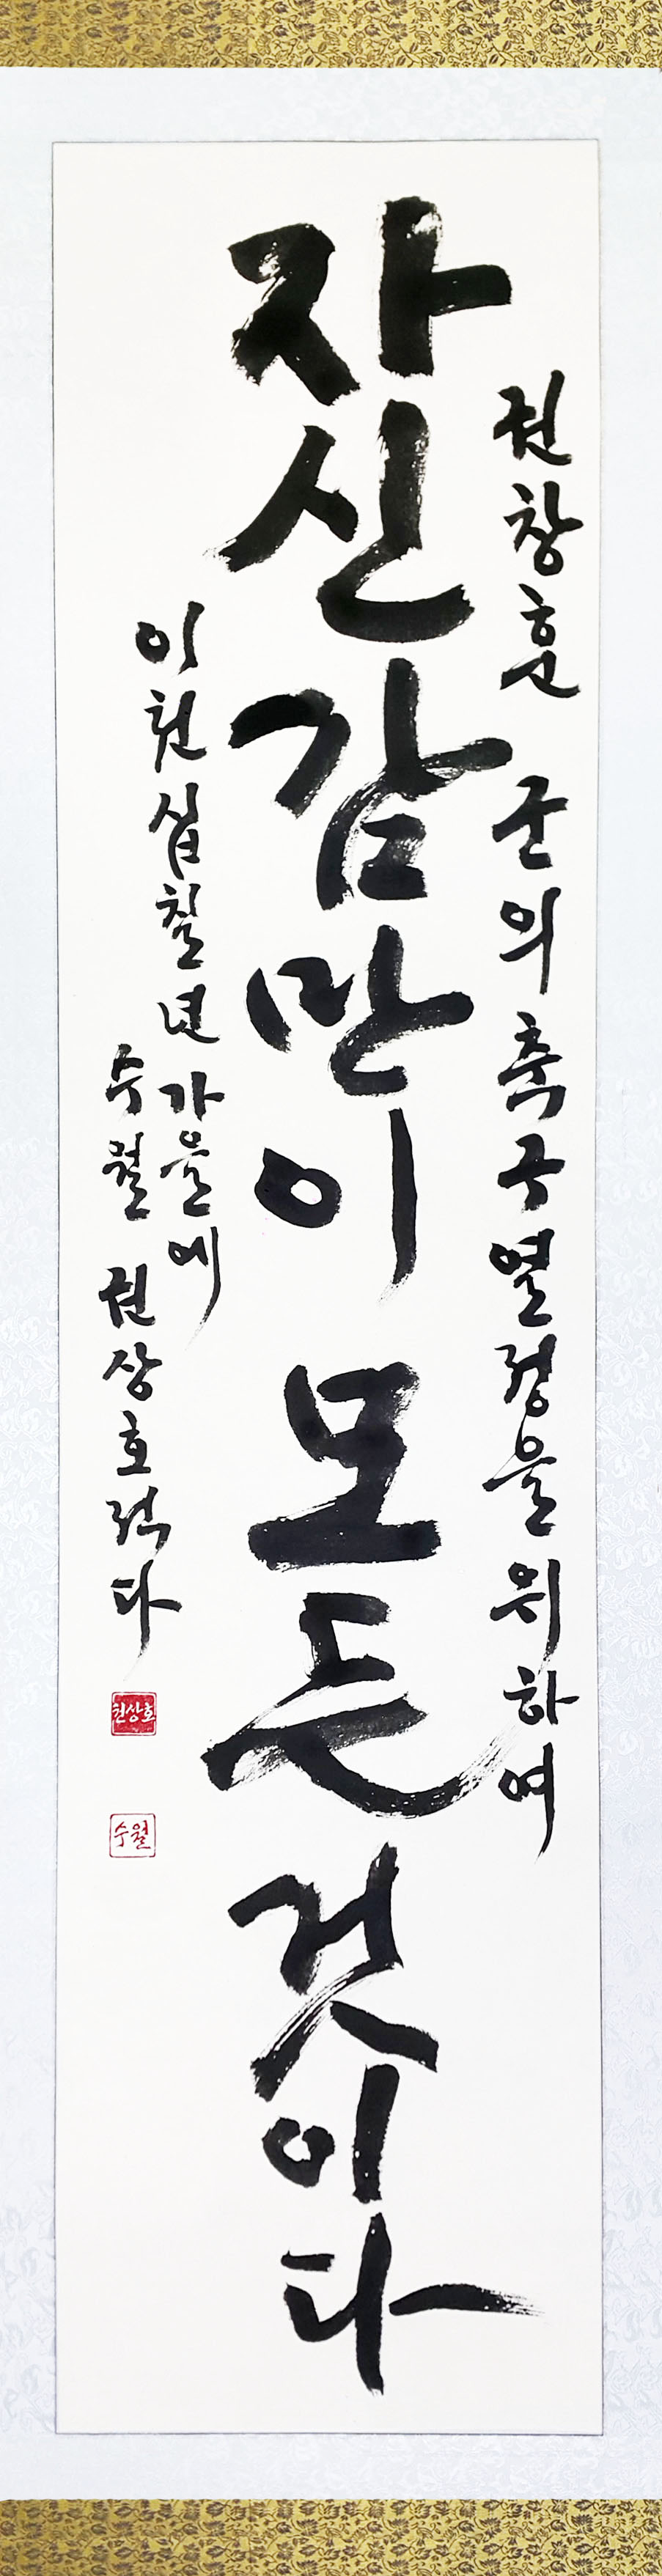 권창훈 군의 축구 열정을 위하여
자신감만이 모든 것이다
이천십칠년 가을에
수월 권상호 적다
권상호
수월